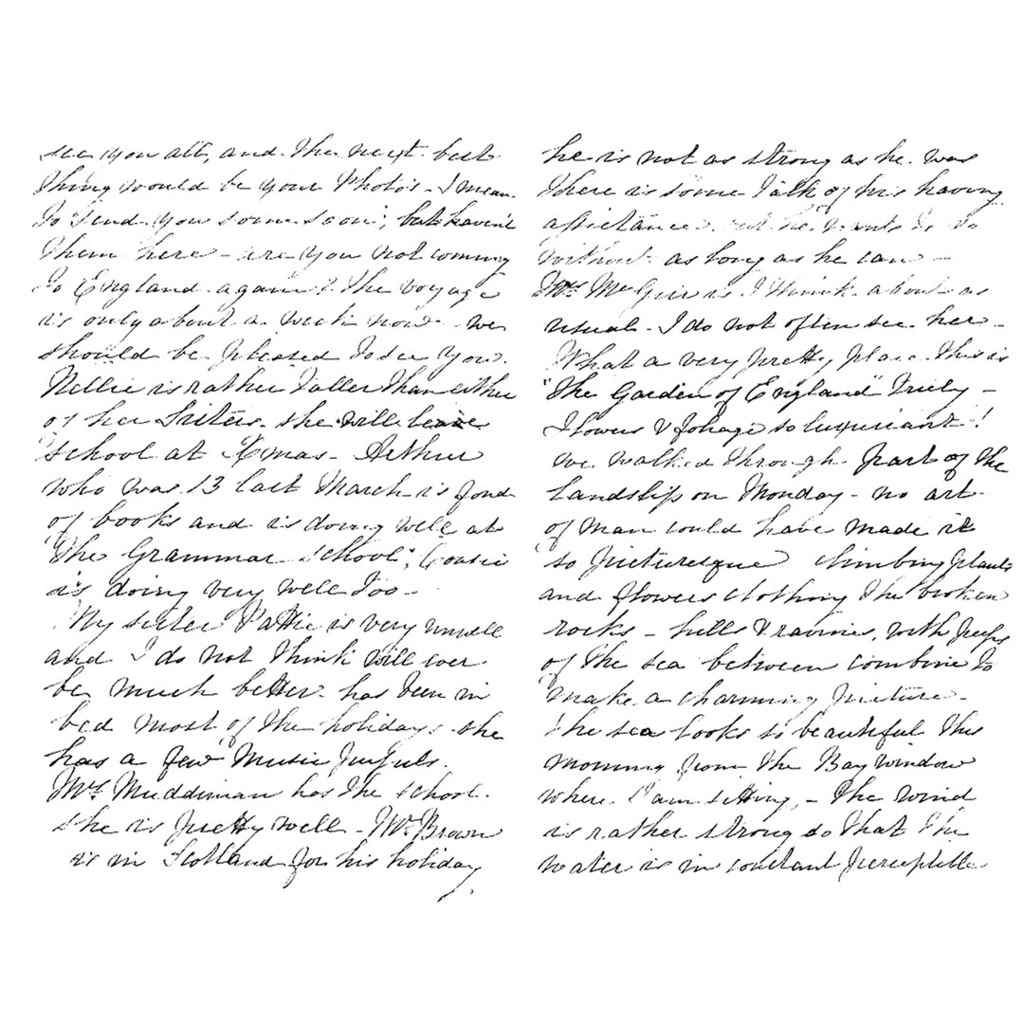 see you all, and the next best
thing would be your Photo's - I mean
to send you some soon, but haven't
them here - are you not coming
to England again? the voyage
is only about a week now - we
should be pleased to see you.
Nellie is rather taller than either
of her Sisters. she will leave
school at Xmas - Arthur
who was 13 last March is fond
of books and is doing well at
"the Grammar School",
is doing very well too -
My sister Pattie is very unwell
and I do not think will ever
be much better. has been in
bed most of the holidays. she
has a few Music Pupils.
Mrs Muddiman has the School.
She is pretty well - Mr Brown
is in Scotland for his holiday,
he is not as strong as he was
there is some talk of his having
assistance but he wants to do
without as long as he can -
Mrs McGeir is I think about as
usual - I do not often see her -
What a very pretty place this is
"The Garden of England" truly -
Flowers & foliage so luxuriant!
we walked through part of the
Landslip on Monday - no art
of man could have made it
so picturesque climbing plants
and flowers clothing the broken
rocks - hills & ravines, with peeps
of the sea between combine to
make a charming picture -
the sea looks so beautiful this
morning from the Bay window
where I am sitting, - the wind
is rather strong so that the
water is in constant perceptible